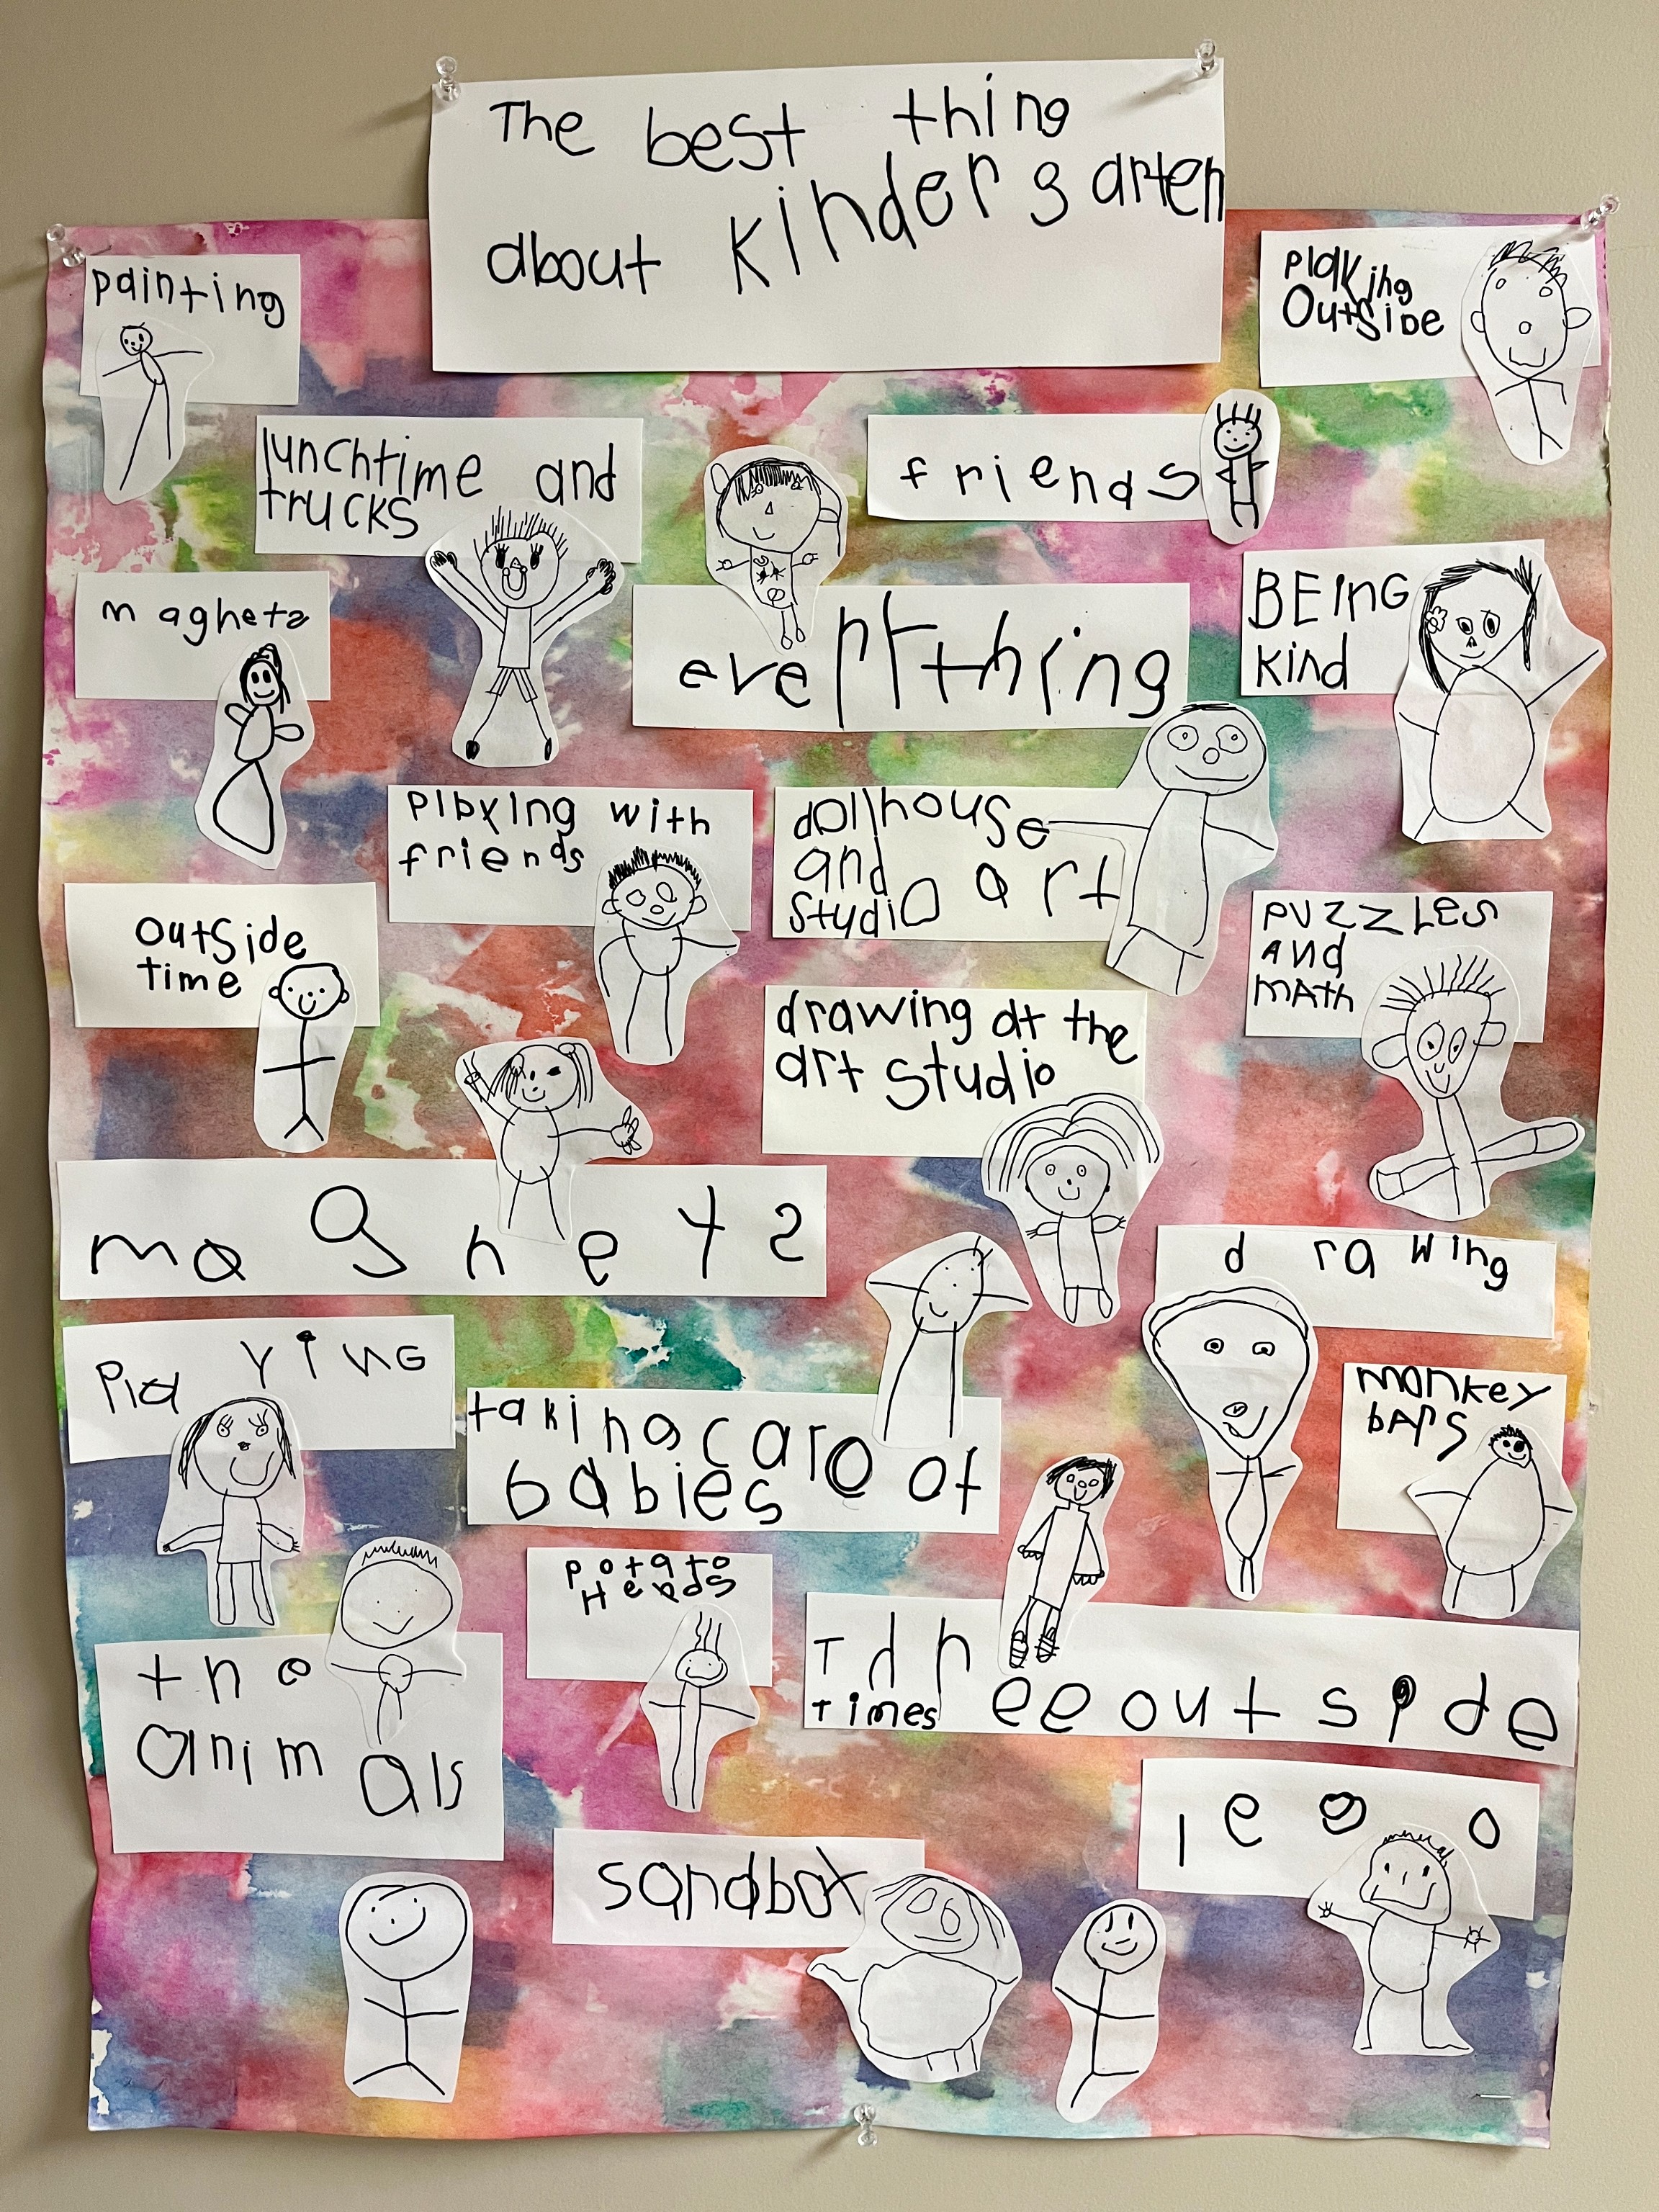 The best thing
about kindergarten
painting
plaking
outside
lunchtime and
trucks
friends
maghets
everything
BEING
kind
playing with
friends
dollhouse
and art
studio
outside
time
puzzLes
And
mAth
drawing at the
art studio
magnets
drawing
playing
taking care of
babies
monkey
bars
potato
Heads
the
animals
Thr
times ee outside
lego
sandbox